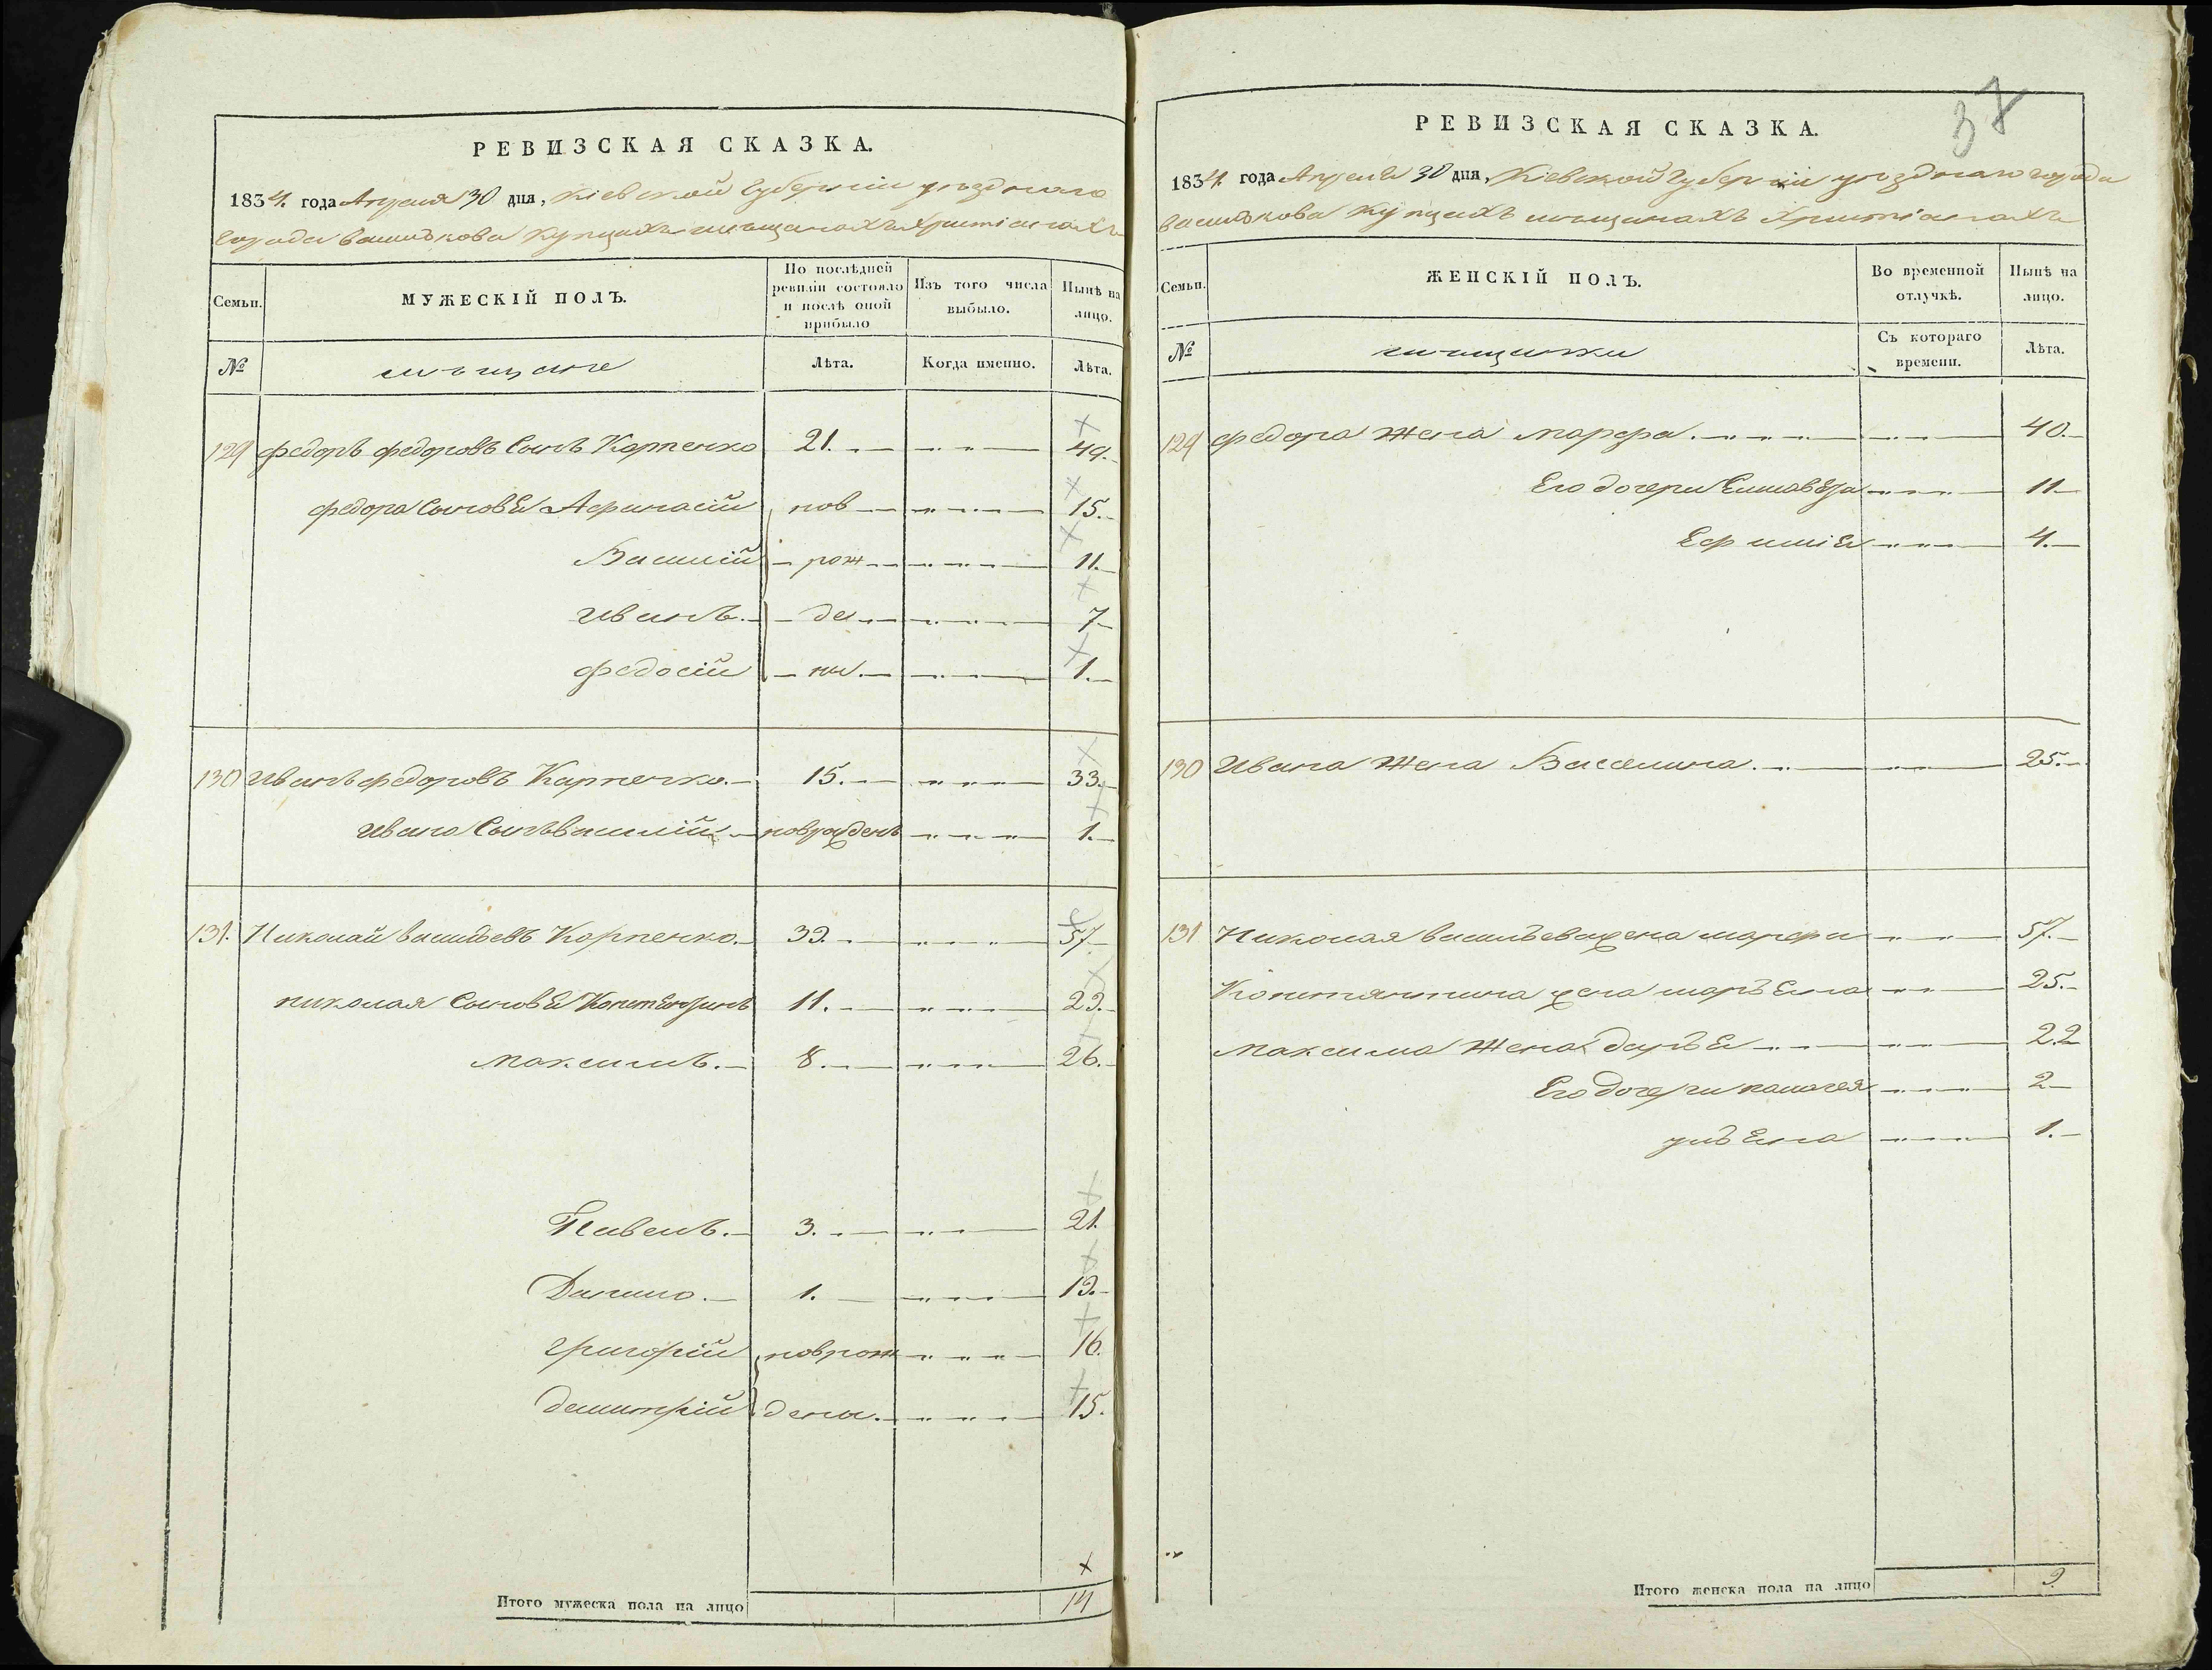 РЕВИЗСКАЯ СКАЗКА.
1834. года Апреля 30 дня, Кіевской Губерніи уѣзднаго
города Василькова Купцахъ мѣщанахъ Християнахъ
Семьи. МУЖЕСКІЙ ПОЛЪ. По послѣдней ревизіи состояло и послѣ оной прибыло Изъ того числа выбыло. Нынѣ на лицо.
№ мѣщане Лѣта. Когда именно. Лѣта.
129 Федоръ Федоровъ Сынъ Карпенко 21. 49.
Федора Сыновья Афанасій нов 15.
Василій рож 11.
Иванъ. де 7
Федосій ны. 1.
130 Иванъ Федоровъ Карпенко. 15. 33.
Ивана Сынъ Василій новрожденъ 1.
131. Николай Васильевъ Карпенко. 39. 57.
Николая Сыновья Констентинъ 11. 29.
Максимъ. 8. 26.
Павелъ. 3. 21.
Данило. 1. 19.
Григорій новрож 16.
Дмитрій дены. 15.
Итого мужеска пола на лицо 14
37
РЕВИЗСКАЯ СКАЗКА.
1834. года Апреля 30 дня, Кіевской Губерніи уѣзднаго города
Василькова Купцахъ мѣщанахъ Християнахъ
Семьи. ЖЕНСКІЙ ПОЛЪ. Во временной отлучкѣ. Нынѣ на лицо.
№ мѣщанки Съ котораго времени. Лѣта.
129 Федора Жена Марфа. 40.
Его дочери Елисавета 11
Ефимия 4.
130 Ивана Жена Васелина. 25.
131 Николая Васильева жена Марфа 57.
Константина жена Марьена 25.
Максима Жена Дарья 22
Его дочери Палагея 2
Ульена 1.
Итого женска пола на лицо 9.